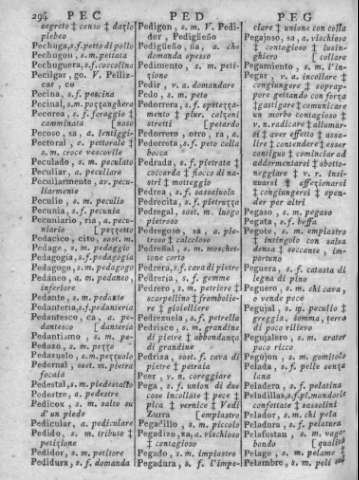 294 PEC PED PEG
segreto ‡ censo ‡ dazio
plebeo
Pechuga, s.f. petto di pollo
Pechugon, s.m. pettata
Pechuguera, s.f. tossolina
Pecilgar, go. V. Pelliz-
car, co
Pecina, s.f. pescina
Pecinal, s.m. pozzanghera
Pecorea, s. f. foraggio ‡
camminata [naso
Pecoso, sa, a. lentiggi-
Pectoral, a. pettorale ‡
s.m. croce vescovile
Peculado, s. m. peculato
Peculiar, a. peculiare
Peculiarmente, av. pecu-
liarmente
Peculio, s. m. peculio
Pecunia, s.f. pecunia
Pecuniario, ria, a. pecu-
niario [pezzetto
Pedacico, cito, sost. m.
Pedage, s. m. pedaggio
Pedagogia, s.f. pedagogia
Pedagogo, s.m. pedagogo
Pedáneo, a. m. pedaneo,
inferiore
Pedante, s. m. pedante
Pedantería, s.f. pedanteria
Pedantesco, ca, a. pe-
dantesco [danteria
Pedantismo, s. m. pe-
Pedazo, s. m. pezzo
Pedazuelo, s.m. pezzuolo
Pedernal, sost. m. pietra
focaia
Pedestal, s.m. piedestallo
Pedestre, a. pedestre
Pedicox, s. m. salto su
d'un piede
Pedicular, a. pediculare
Pedido, s. m. tributo ‡
petizione
Pedidor, s. m. petitore
Pedidura, s. f. domanda
Pedigon, s. m. V. Pedi-
der, Pedigüeño
Pedigüeño, ña, a. che
domanda spesso
Pedimento, s. m. peti-
zione
Pedir, v. a. domandare
Pedo, s. m. peto
Pedorrera, s. f. spetezza-
mento ‡ plur. calzoni
stretti [petardo
Pedorrero, orro, ra, a.
Pedorreta, s.f. peto colla
bocca
Pedrada, s. f. pietrata ‡
coccarda ‡ fiocco di na-
stri ‡ motteggio
Pedrea, s.f. sassaiuola
Pedrecita, s.f. pietruzza
Pedregal, sost. m. luogo
pietroso
Pedregoso, sa, a. pie-
troso ‡ calcoloso
Pedreñal, s.m. moschet-
tone corto
Pedrera, s.f. cava di pietre
Pedrería, s. f. gemme
Pedrero, s. m. petriero ‡
scarpellino ‡ frombolie-
re ‡ gioielliere
Pedrezuela, s. f. petrella
Pedrisco, s. m. grandine
di pietre ‡ abbondanza
di grandine
Pedriza, sost. f. cava di
pietre ‡ petraia
Peer, v. n. coreggiare
Pega, s. f. union di due
cose incollate ‡ pece ‡
pica ‡ vernice ‡ Vedi
Zurra [empiastro
Pegadillo, s. m. piccolo
Pegadizo, za, a. vischioso
‡ contagioso
Pegado, s. m. impiastro
Pegadura, s. f. l'impe-
clare ‡ unione con colla
Pegajoso, sa, a. vischioso
‡ contagioso ‡ lusin-
ghiero [collare
Pegamiento, s. m. l'in-
Pegar, v. a. incollare ‡
congiungere ‡ soprap-
porre gettando con forza
‡ gastigare ‡ comunicare
un morbo contagioso ‡
v. n. radicare ‡ allumar-
si ‡ aver effetto ‡ assa-
lire ‡ contendere ‡ esser
contiguo ‡ cominciar ad
addormentarsi ‡ abotto-
neggiare ‡ v. r. insi-
nuarsi ‡ affezionarsi
‡ congiungersi ‡ spen-
der per altri
Pegaso, s. m. pegaso
Pegata, s.f. beffa
Pegote, s. m. empiastro
‡ intingolo con salsa
densa ‡ seccante, im-
portuno
Peguera, s. f. catasta di
legna di pino
Peguero, s. m. chi cava,
o vende pece
Pegujal, s. m. peculio ‡
greggia, somma, terra
di poco rilievo
Pegujalero, s. m. arator
poco ricco
Pegujon, s. m. gomitolo
Pelada, s. f. pelle senza
lana
Peladera, s. f. pelatina
Peladillas, s.f.pl. mandorle
confettate ‡ sassolini
Pelador, s. m. chi pela
Peladura, s. f. pelatura
Pelafustan, s. m. vaga-
bondo [qualità
Pelage, s. m. pelame ‡
Pelambre, s. m. peli